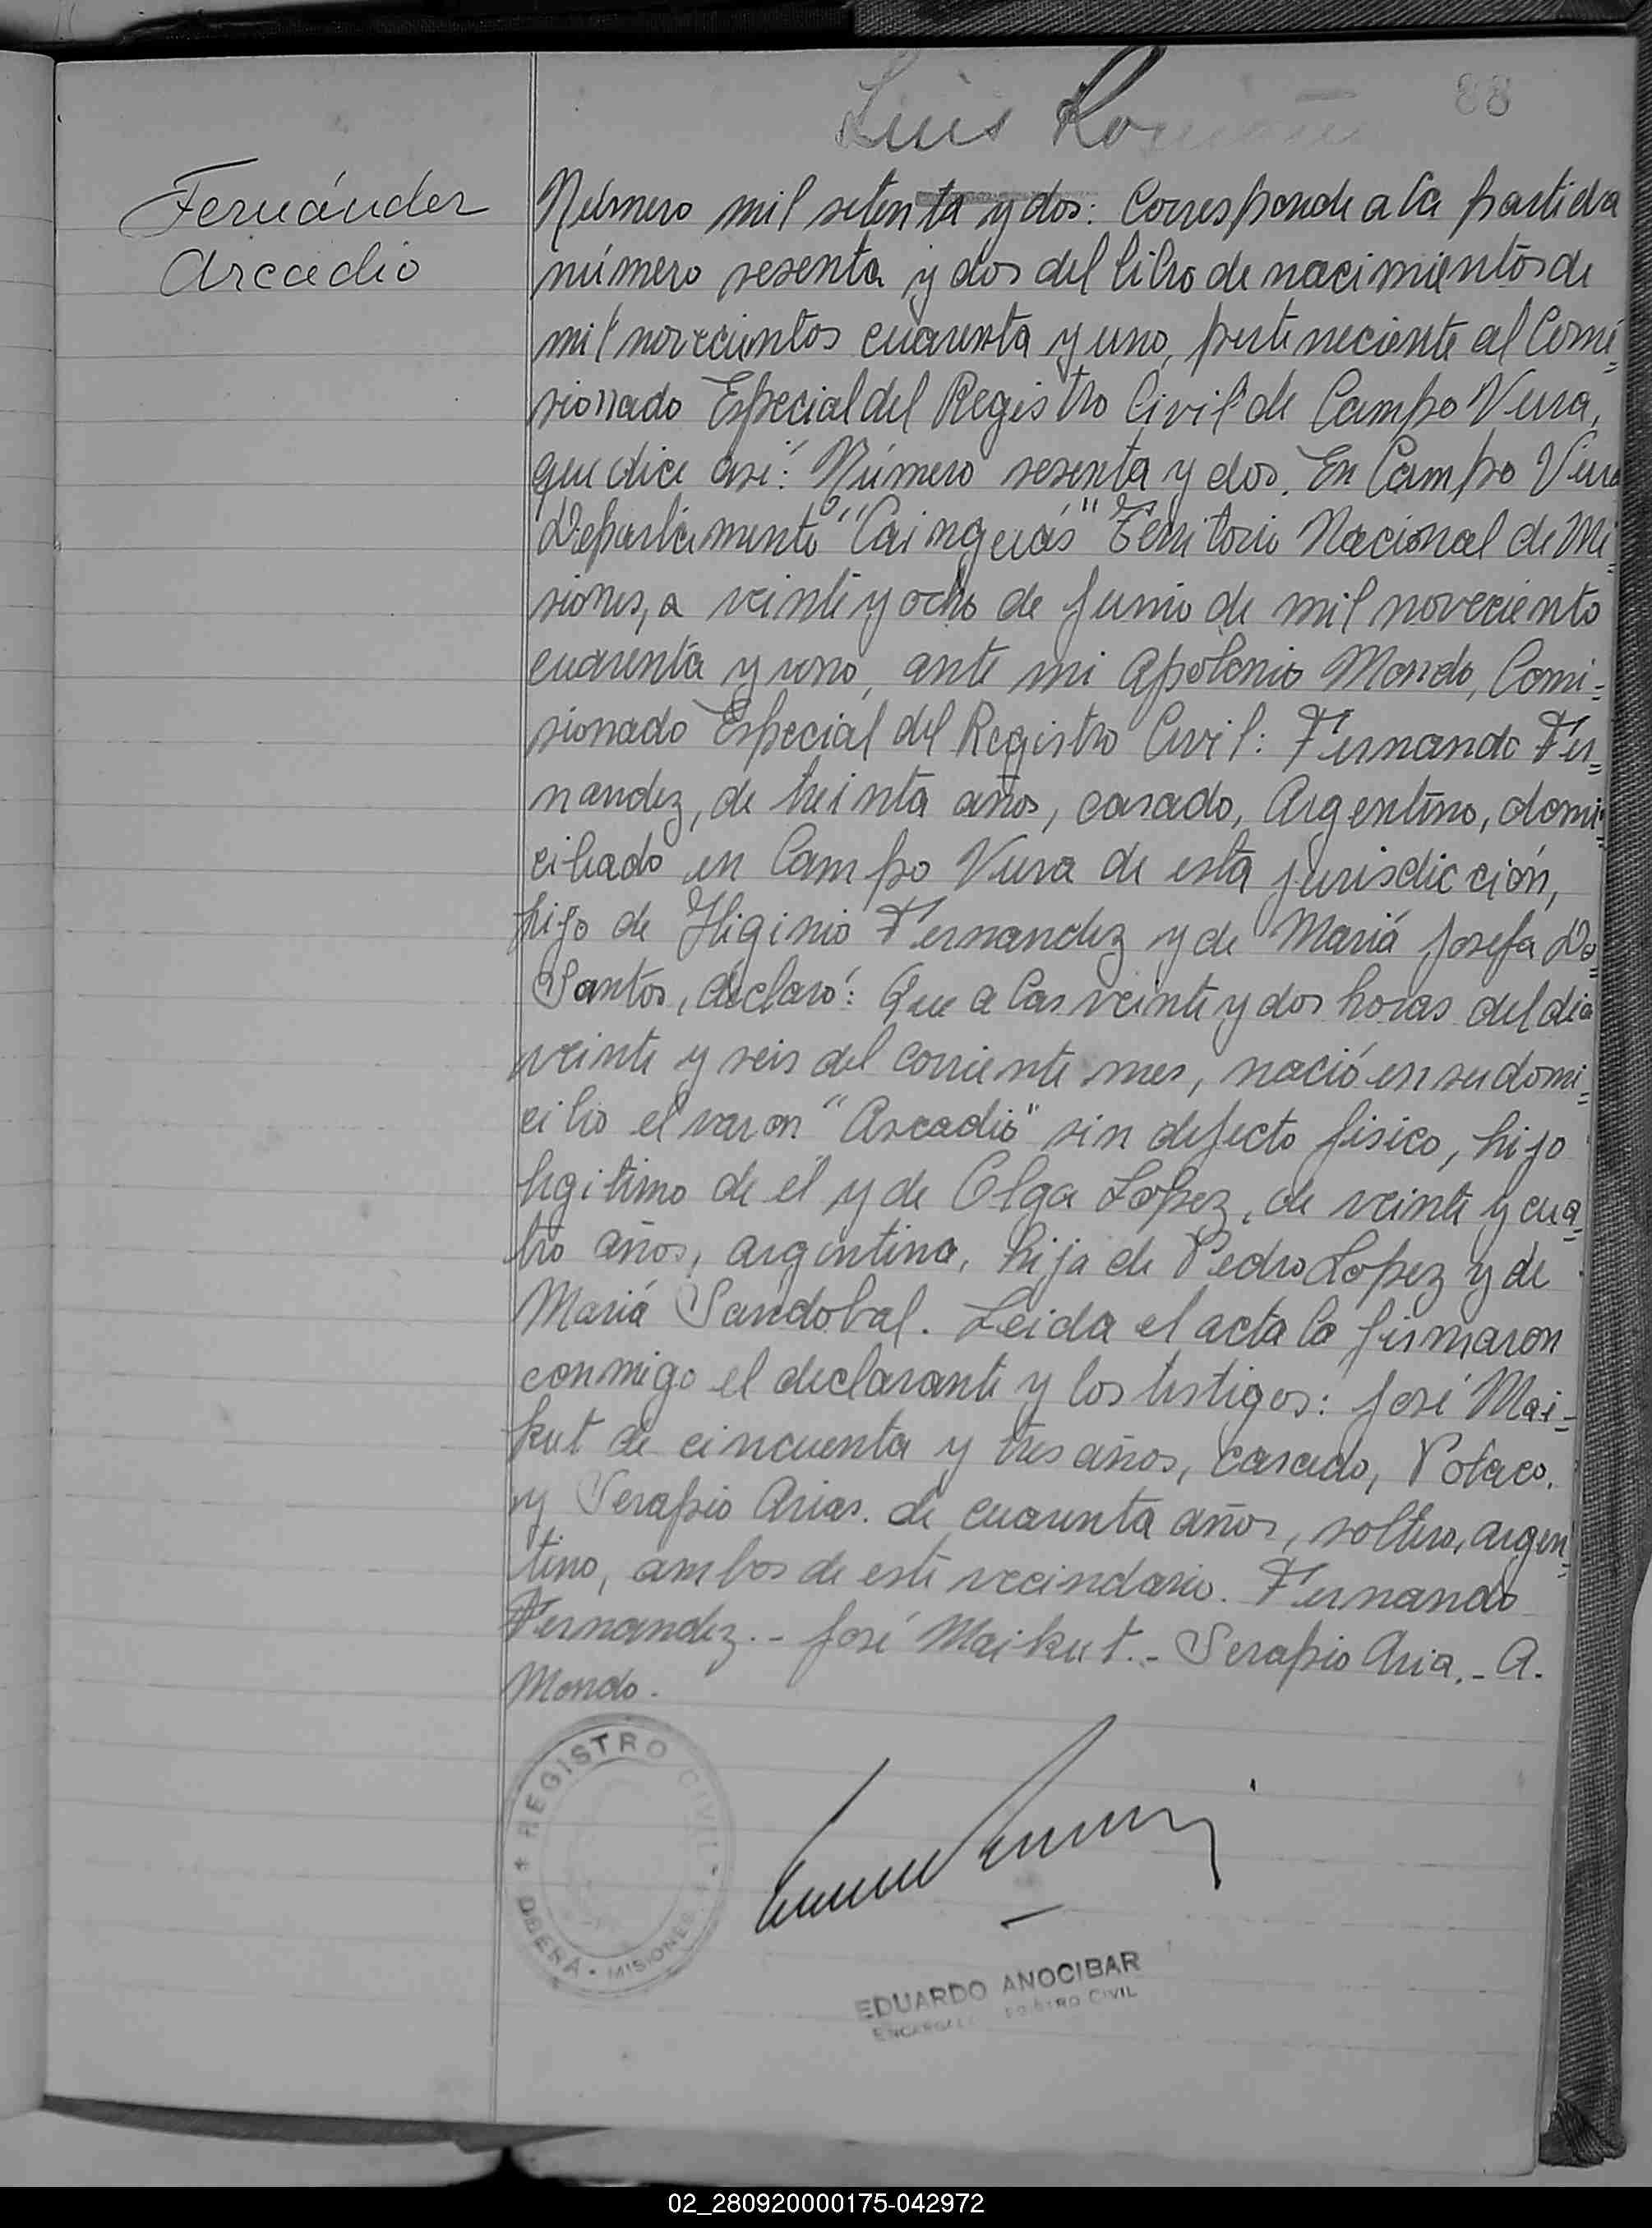 Luis
88
Fernández
Arcadio
Número mil setenta y dos: Corresponde a la partida
número sesenta y dos del libro de nacimientos de
mil novecientos cuarenta y uno, perteneciente al Comi=
sionado Especial del Registro Civil de Campo Viera,
que dice así: Número sesenta y dos. En Campo Viera
Departamento "Cainguás" Territorio Nacional de Mi=
siones, a veinte y ocho de Junio de mil noveciento
cuarenta y uno, ante mi Apolonio Mondo, Comi=
sionado Especial del Registro Civil: Fernando Fer=
nandez, de treinta años, casado, Argentino, domi=
ciliado en Campo Viera de esta jurisdicción,
hijo de Higinio Fernandez y de Mariá Josefa Do=
Santos, declaró: Que a las veinte y dos horas del dia
veinte y seis del corriente mes, nació en su domi=
cilio el varon "Arcadio" sin defecto fisico, hijo
legitimo de él y de Olga Lopez, de veinte y cua=
tro años, argentina, hija de Pedro Lopez y de
Mariá Sandobal. Leida el acta la firmaron
conmigo el declarante y los testigos: José Mai=
kut de cincuenta y tres años, casado, Polaco.
y Serapio Arias. de cuarenta años, soltero, argen=
tino, ambos de este vecindario. Fernando
Fernandez.- José Maikut.- Serapio Aria.- A.
Mondo.
REGISTRO CIVIL
OBERÁ - MISIONES
EDUARDO ANOCIBAR
REGISTRO CIVIL
02_280920000175-042972